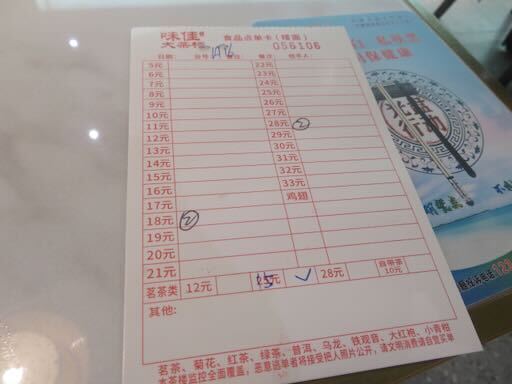 味佳
大茶楼
食品点单卡（楼面）
056106
日期： 台号： 餐次 经手人：
5元 22元
6元 23元
7元 24元
8元 25元
9元 26元
10元 27元
11元 28元 ②
12元 29元
13元 30元
14元 31元
15元 32元
16元 33元
17元 鸡翅
18元 ②
19元
20元
21元
茗茶类 12元 15元 ✓ 28元 自带茶 10元
其他：
茗茶、菊花、红茶、绿茶、普洱、乌龙、铁观音、大红袍、小青柑
本茶楼监控全面覆盖，恶意逃单者将接受把人照片公开，请文明消费请自觉买单